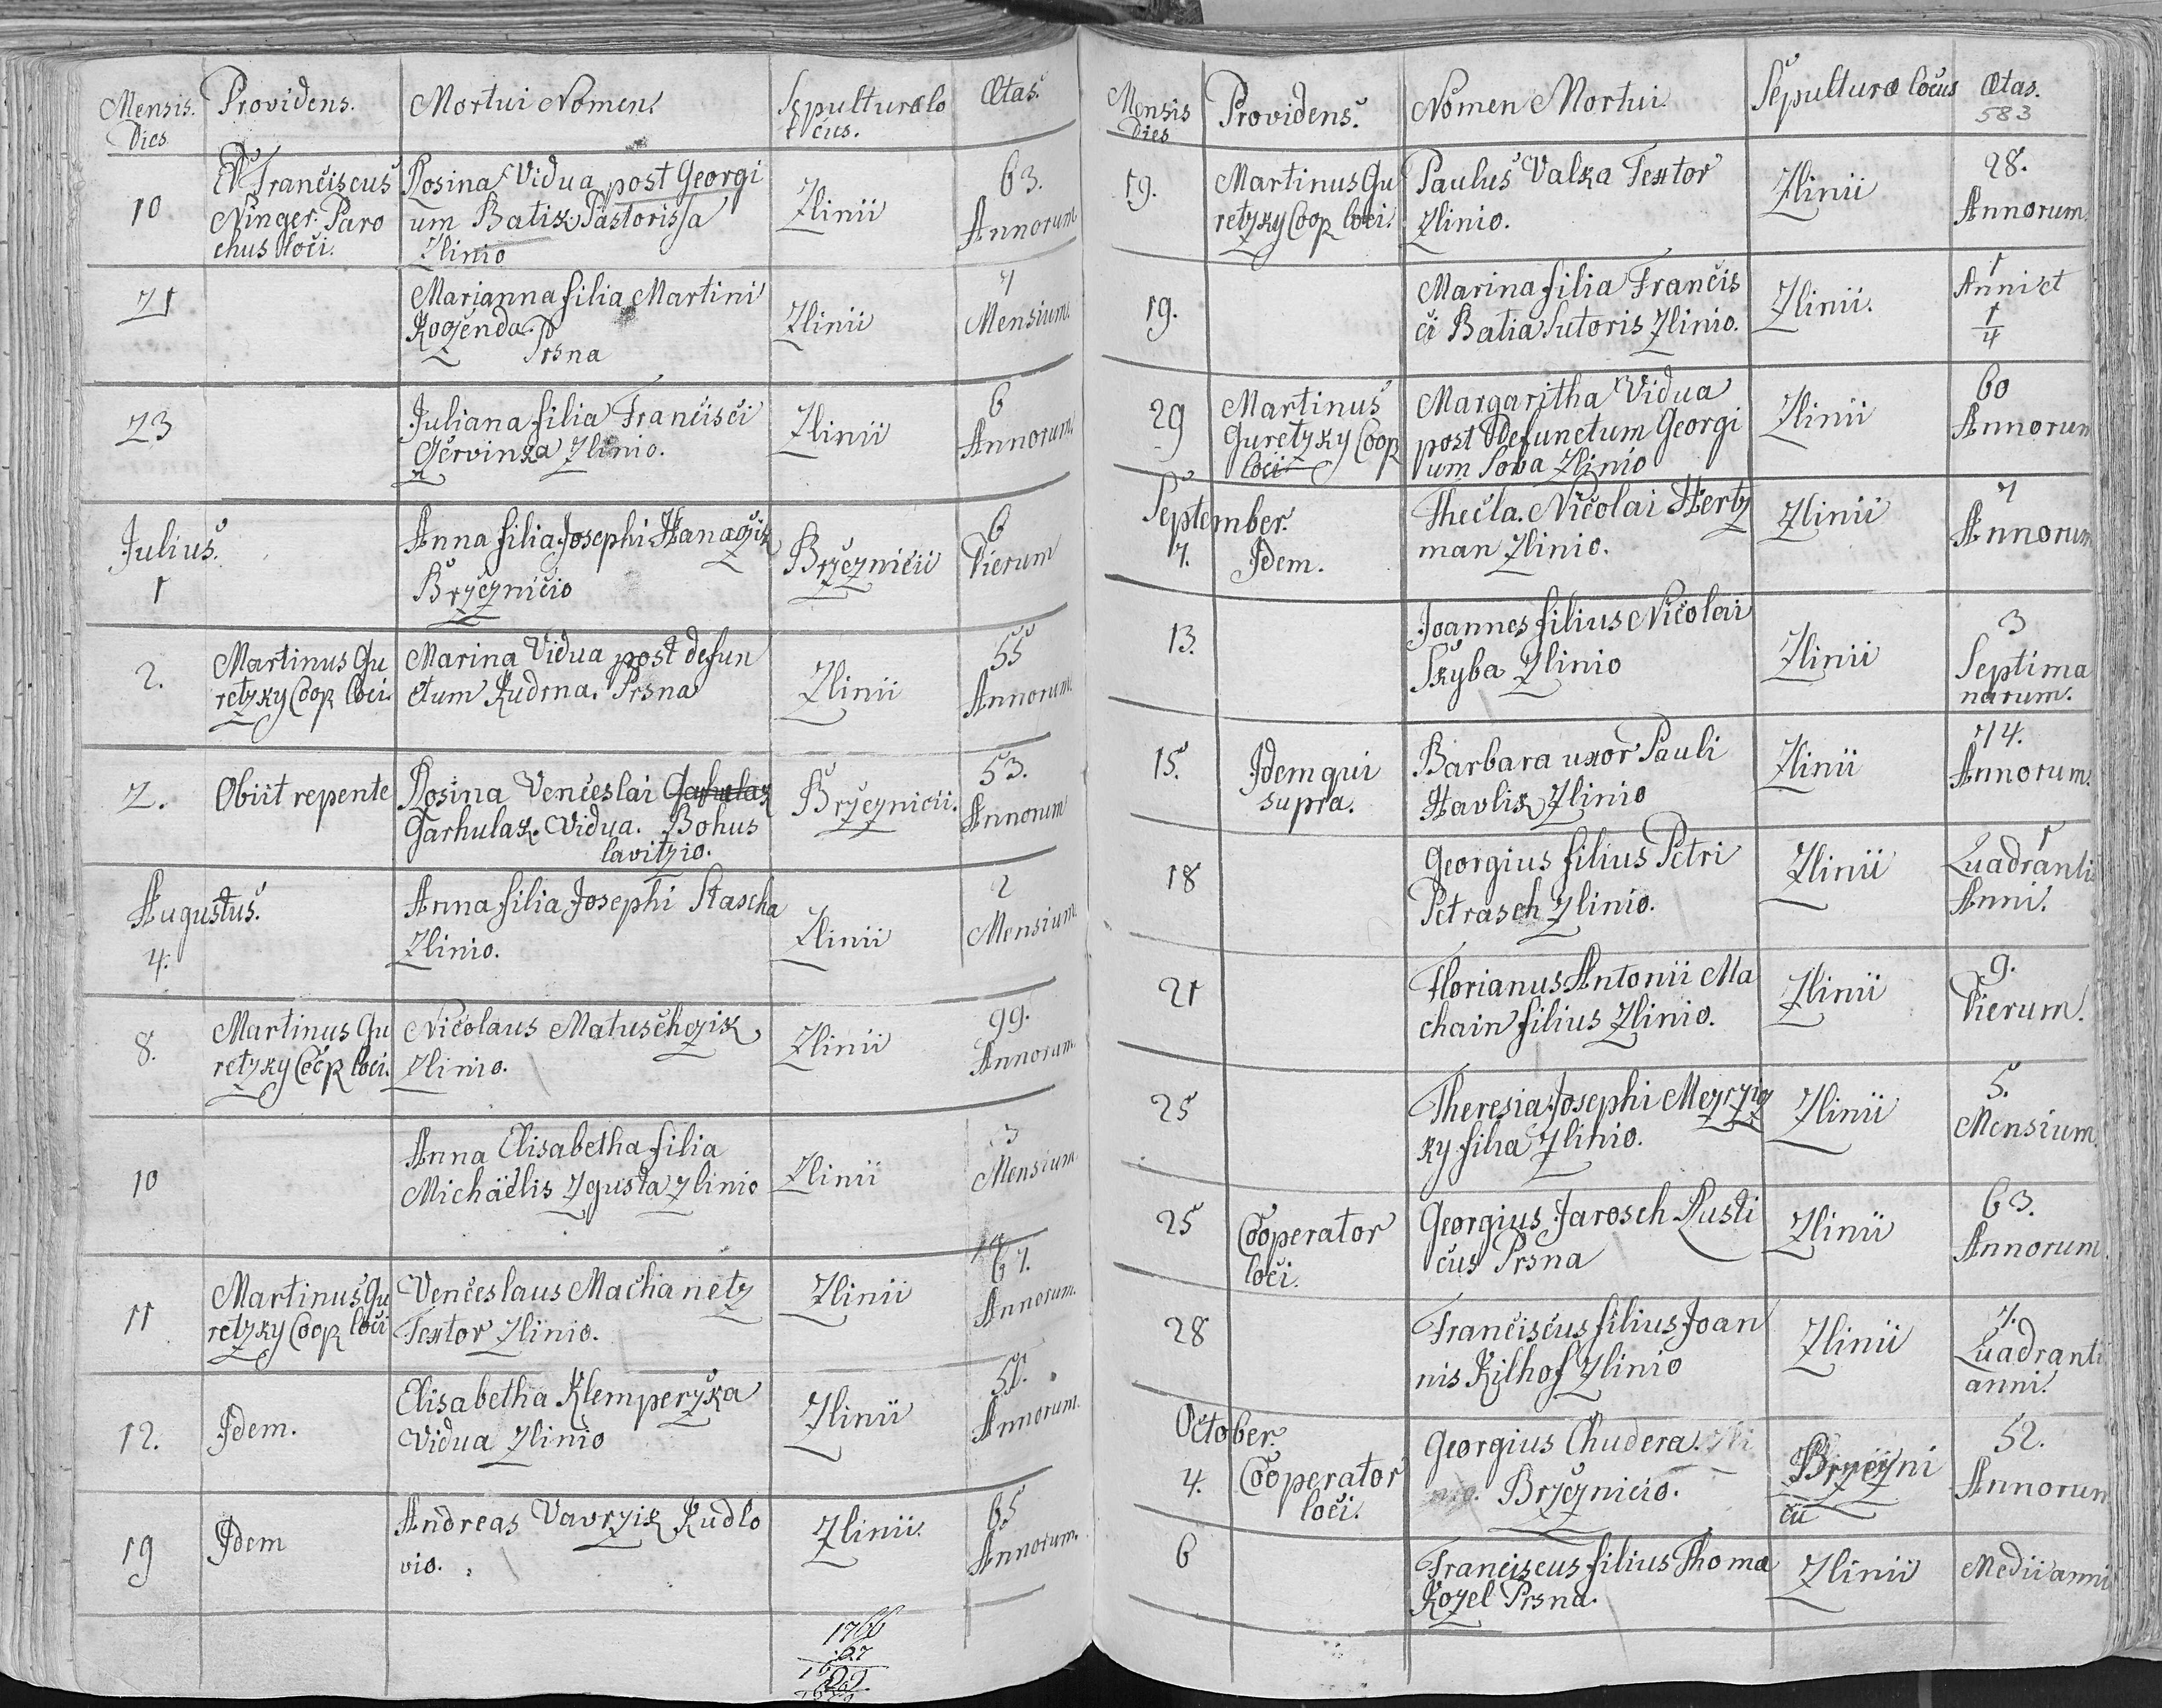 Mensis. Dies Providens. Mortui Nomen. Sepulturæ locus. Ætas.
10 Franciscus Ninger Parochus loci. Rosina Vidua post Georgi
um Batik Pastorissa
Zlinio Zlinii 63. Annorum
21 Marianna filia Martini
Kozenda. Prsna Zlinii 7 Mensium.
23 Juliana filia Francisci
Czervinka Zlinio. Zlinii 6 Annorum.
Julius.
1 Anna filia Josephi Hanaczik
Brzeznicio Brzeznicii 6 Dierum
2. Martinus Gu
retzky Coop loci. Marina Vidua post defun
ctum Kudrna. Prsna Zlinii 55 Annorum.
2. Obiit repente Rosina Venceslai
Garhulak Vidua. Bohus
lavitzio. Brzeznicii. 53. Annorum
Augustus.
4. Anna filia Josephi Stascha
Zlinio. Zlinii 2 Mensium
8. Martinus Gu
retzky Coop loci. Nicolaus Matuschczik
Zlinio. Zlinii 99. Annorum
10 Anna Elisabetha filia
Michäelis Zgusta Zlinio Zlinii 3 Mensium
11 Martinus Gu
retzky Coop loci Venceslaus Machanetz
Textor Zlinio. Zlinii 67. Annorum.
12. Idem. Elisabetha Klemperzka
Vidua Zlinio Zlinii 52. Annorum.
19 Idem Andreas Vavrzik Kudlo
vio. Zlinii. 65 Annorum.
1766
Mensis Dies Providens. Nomen Mortui Sepulturæ locus Ætas.
583
19. Martinus Gu
retzky Coop loci. Paulus Valka Textor
Zlinio. Zlinii 28. Annorum.
19. Marina filia Francis
ci Batia Sutoris Zlinio. Zlinii. 1 Anni et 1/4
29 Martinus
Guretzky Coop
loci Margaritha Vidua
post Defunctum Georgi
um Sova Zlinio Zlinii 60 Annorum
September.
7. Idem. Thecla. Nicolai Hertz
man Zlinio. Zlinii 7 Annorum
13. Joannes filius Nicolai
Skyba Zlinio Zlinii 3 Septima
narum.
15. Idem qui
supra. Barbara uxor Pauli
Havlik Zlinio Zlinii 74. Annorum.
18 Georgius filius Petri
Petrasch Zlinio. Zlinii 1 Quadranti
Anni.
21 Florianus Antonii Ma
chain filius Zlinio. Zlinii 9. Dierum.
25 Theresia Josephi Mezrzicz
ky filia Zlinio. Zlinii 5. Mensium.
25 Cooperator
loci. Georgius Jarosch Rusti
cus Prsna Zlinii 63. Annorum.
28 Franciscus filius Joan
nis Kilhof Zlinio Zlinii 7. Quadranti
anni.
October.
4. Cooperator
loci. Georgius Chudera.
Brzeznicio. Brzezni
cii 52. Annorum
6 Franciscus filius Thoma
Kozel Prsna. Zlinii Medii anni